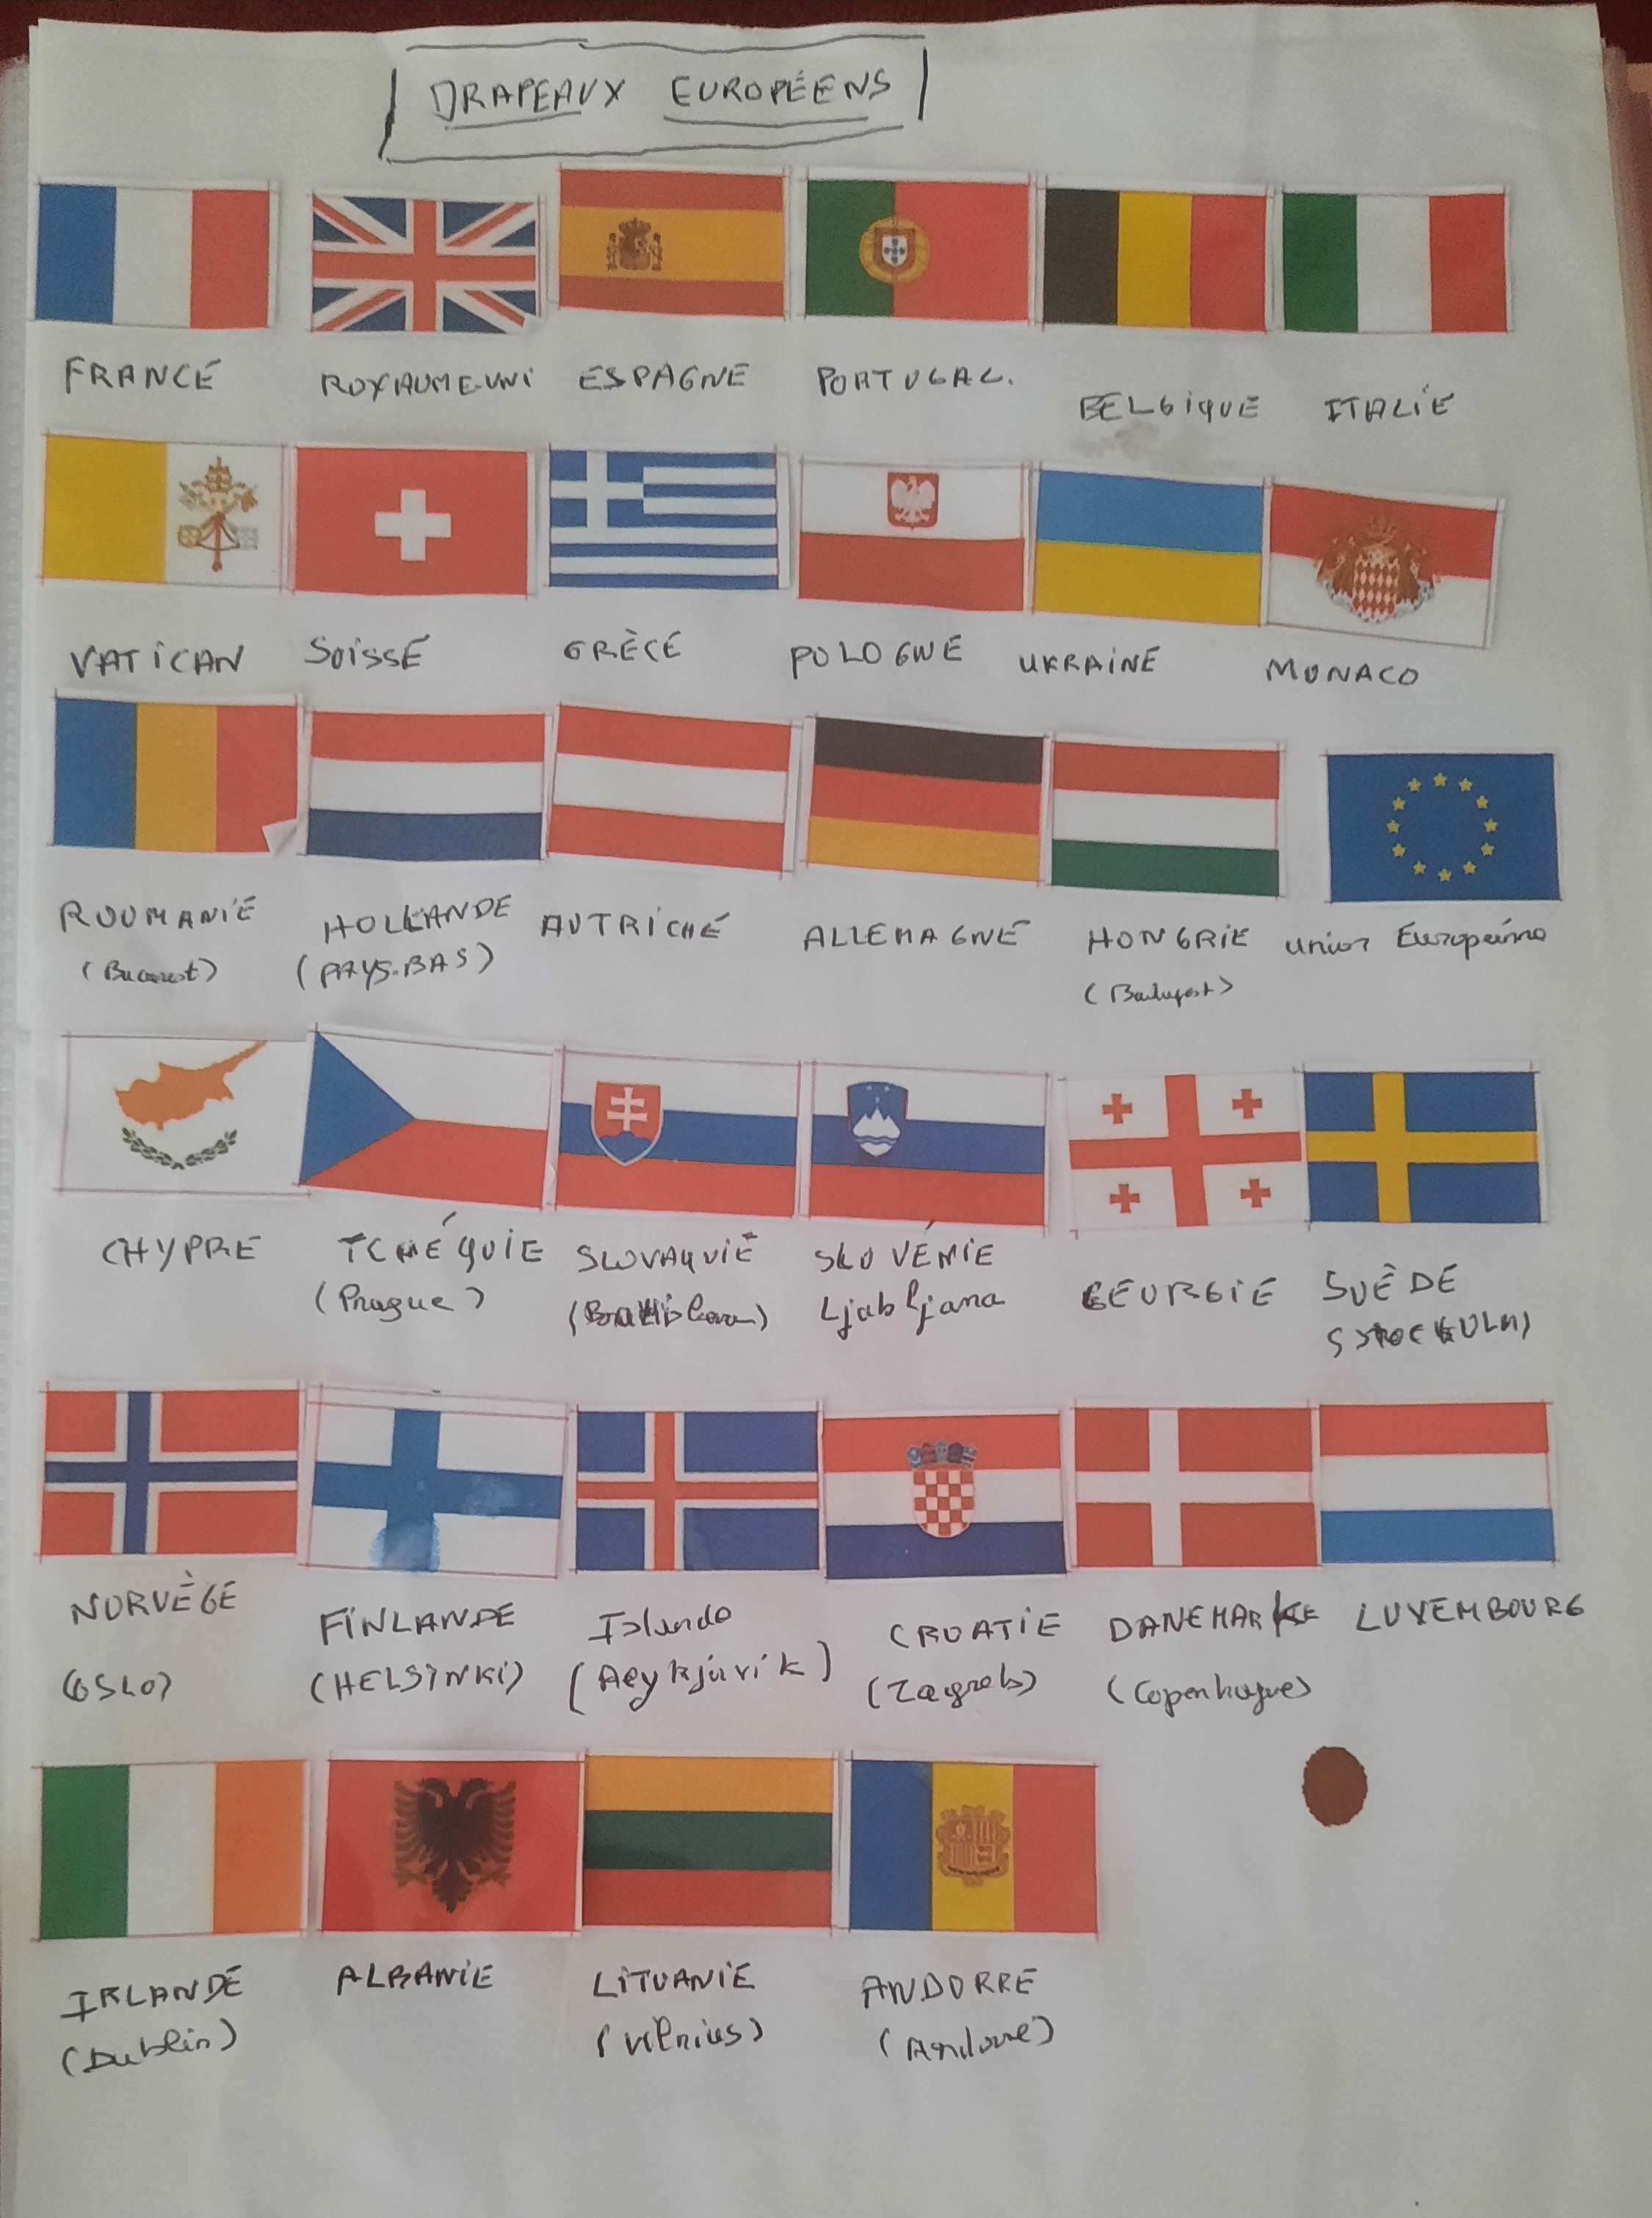 DRAPEAUX EUROPÉENS
FRANCE ROYAUME-UNI ESPAGNE PORTUGAL. BELGIQUE ITALIE
VATICAN SUISSE GRÈCE POLOGNE UKRAINE MONACO
ROUMANIE HOLLANDE AUTRICHE ALLEMAGNE HONGRIE Union Européenne
(Bucarest) (PAYS-BAS) (Budapest)
CHYPRE TCHÉQUIE SLOVAQUIE SLOVÉNIE GEORGIE SUÈDE
(Prague) Ljabljana
NORVÈGE FINLANDE Islande CROATIE DANEMARKE LUXEMBOURG
(OSLO) (HELSINKI) (Reykjavik) (Zagreb) (Copenhague)
IRLANDE ALBANIE LITUANIE ANDORRE
(Dublin) (Vilnius) (Andorre)